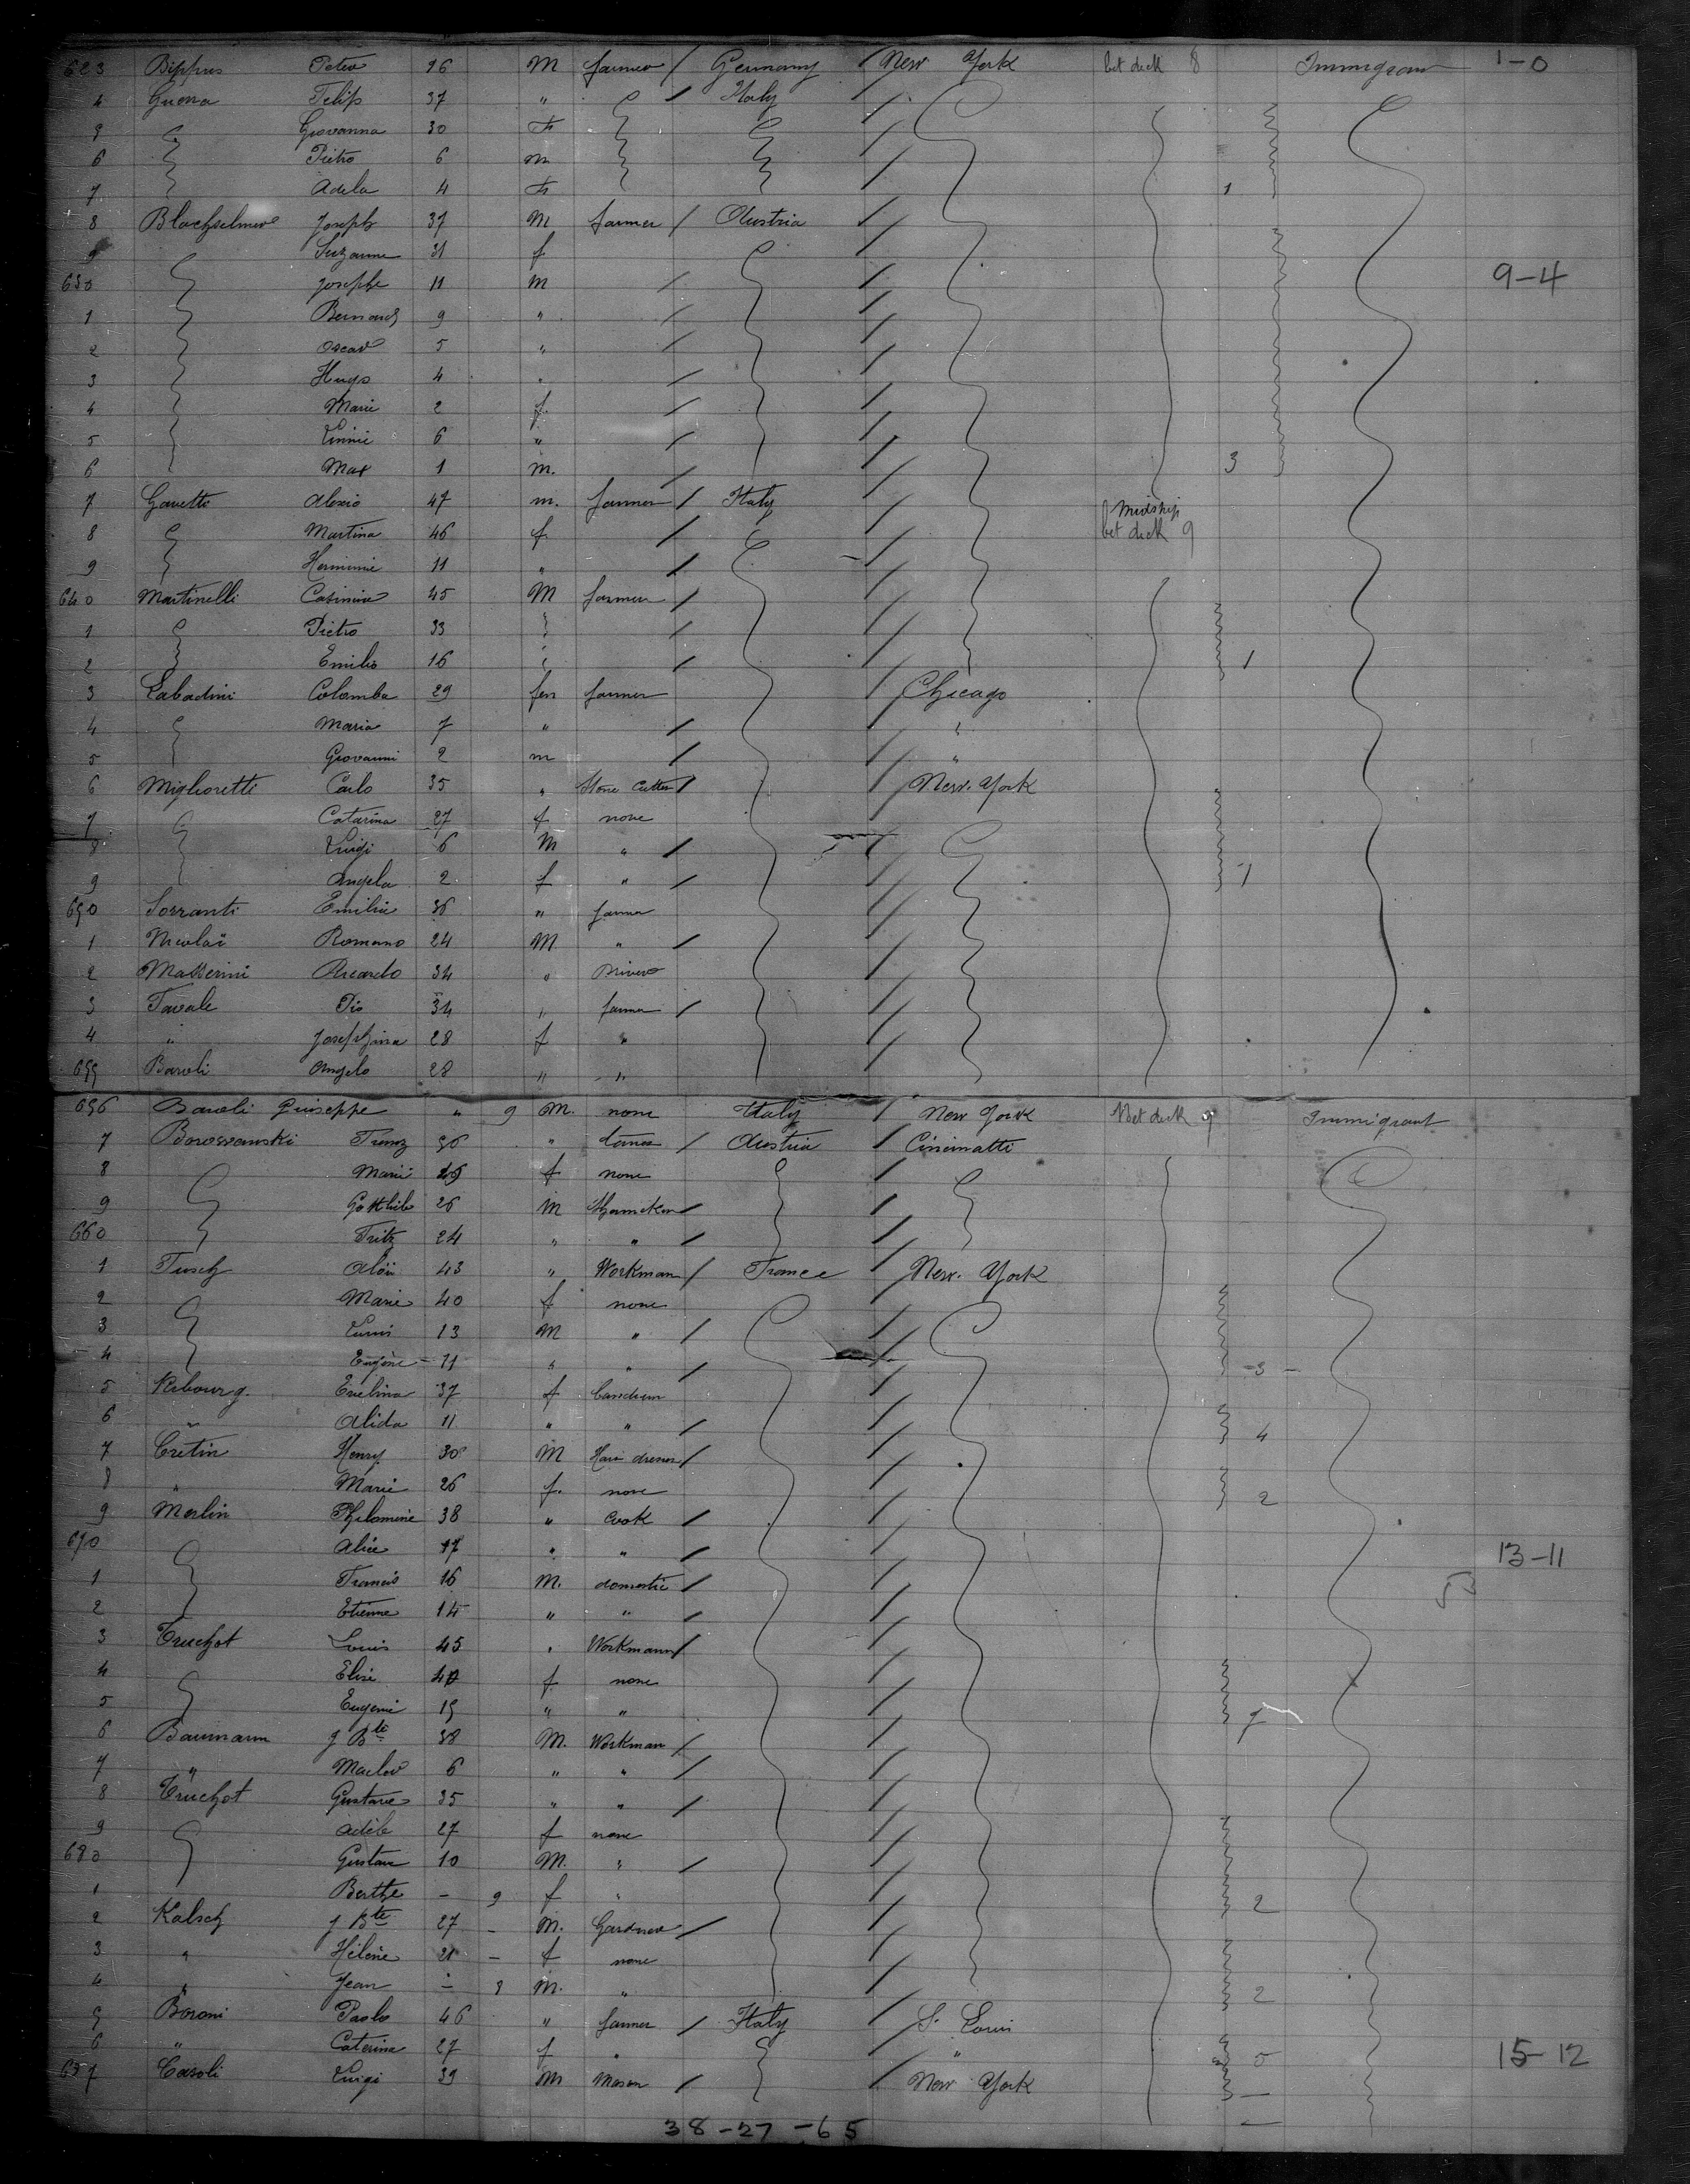 623 Bippus Peter 16 M farmer / Germany / New York bet deck 8 Immigrant 1-0
4 Guerra Felip 37 " / Italy /
5 Giovanna 30 F /
6 Pietro 6 m /
7 Adela 4 F / 1
8 Joseph 37 M farmer / Austria /
9 Suzanne 31 f /
630 Josephe 11 M / / 9-4
1 Bernard 9 " / /
2 Oscar 5 " / /
3 Hugo 4 " / /
4 Marie 2 f. / /
5 6 " / /
6 Max 1 m. / / 3
7 Gavetti Alexio 47 m. farmer / Italy / Midship
8 Martina 46 f / / bet deck 9
9 Herminie 11 " / /
640 Martinelli Casimir 45 M farmer / /
1 Pietro 33 / /
2 Emilio 16 / / 1
3 Labadini Colomba 29 fem farmer / Chicago
4 Maria 7 " / / "
5 Giovanni 2 m / / "
6 Miglioretti Carlo 35 " Stone Cutter / / New-York
7 Catarina 27 f none /
8 Luigi 6 M " / /
9 Angela 2 f " / / 1
650 Sorranti Emilie 36 " farmer /
1 Nicolaï Romano 24 M " / /
2 Masserini Ricardo 34 " Driver /
3 Tavale Pio 34 " farmer / /
4 " Josephina 28 f " /
655 Baroli Angelo 28 " " /
656 Baroli Guiseppe " 9 M. none Italy / New York bet deck 9 Immigrant
7 Borowanski Franz 56 " / Austria / Cincinatti
8 Marie 49 f none /
9 Gottlieb 26 m / /
660 Fritz 24 " " / /
1 Tusch Aloïs 43 " Workman / France / New-York
2 Marie 40 f none /
3 13 M " / /
4 Eugène 11 " " / / 3
5 Ribourg Evelina 37 f /
6 " Alida 11 " " / / 4
7 Cretin Henry 30 M Hair dresser / /
8 " Marie 26 f. none / 2
9 Merlin Philomène 38 " Cook / /
670 Alice 17 " " / / 13-11
1 Francis 16 M. domestic / /
2 Etienne 14 " " / /
3 Truchot Louis 45 " Workmann / /
4 Elise 40 f none /
5 Eugenie 15 " " / 7
6 Baumann J Bte 38 M. Workman / /
7 " 6 " " / /
8 Truchot Gustave 35 " " / /
9 Adèle 27 f none /
680 Gustave 10 M. " / /
1 Berthe - 9 f " / 2
2 Kalsch J Bte 27 - M. Gardner / /
3 " Hélène 21 - f none /
4 " Jean - 8 M. " / 2
5 Boroni Paolo 46 " farmer / Italy / S. Louis
6 " Caterina 27 f " / " 5 15-12
687 Casoli Luigi 39 M Mason / / New York
38-27-65